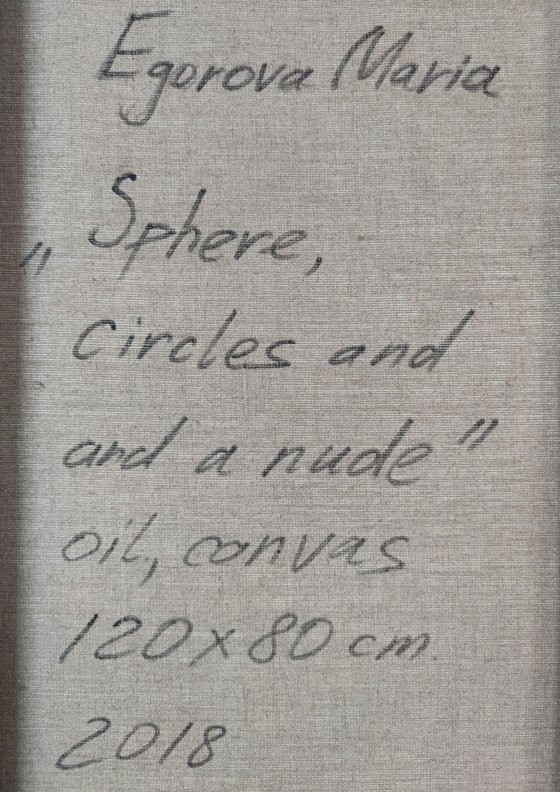 Egorova Maria
„Sphere,
circles and
and a nude"
oil, canvas
120x80 cm.
2018